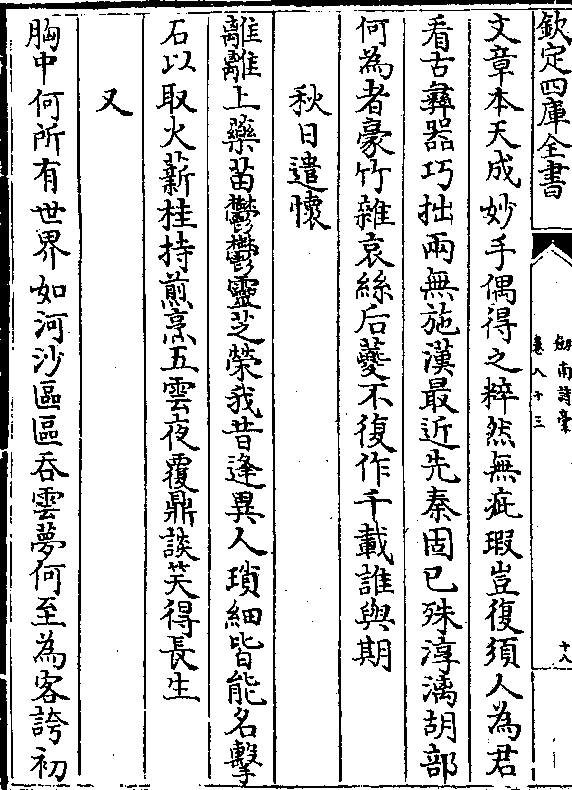 欽定四庫全書
劍南詩槀
卷八十三
十八
文章本天成妙手偶得之粹然無疵瑕豈復須人為君
看古彝器巧拙兩無施漢最近先秦固已殊淳漓胡部
何為者豪竹雜哀絲后夔不復作千載誰與期
秋日遣懷
離離上藥苗鬱鬱靈芝榮我昔逢異人瑣細皆能名擊
石以取火薪桂持煎烹五雲夜覆鼎談笑得長生
又
胸中何所有世界如河沙區區吞雲夢何至為客誇初